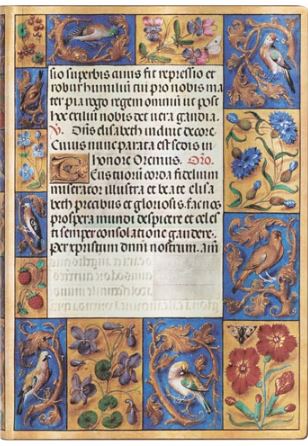 sio superbis cuius fit repressio et
robur humiliū cui pro nobis ma
ter pia rogo regem omniū ut post
hec exiliū nobis det vera gaudia.
V. Dn̄s elisabeth induit decore.
Cuius nunc parata est sedis in
honore Oremus. Oro.
Tuorū corda fidelium
miserator illustra et beate elisa
beth precibus et gloriosis: fac nos
prospera mundi despicere et celes
ti semper consolatione gaudere.
Per xpristum dnm̄ nostrum. am̄